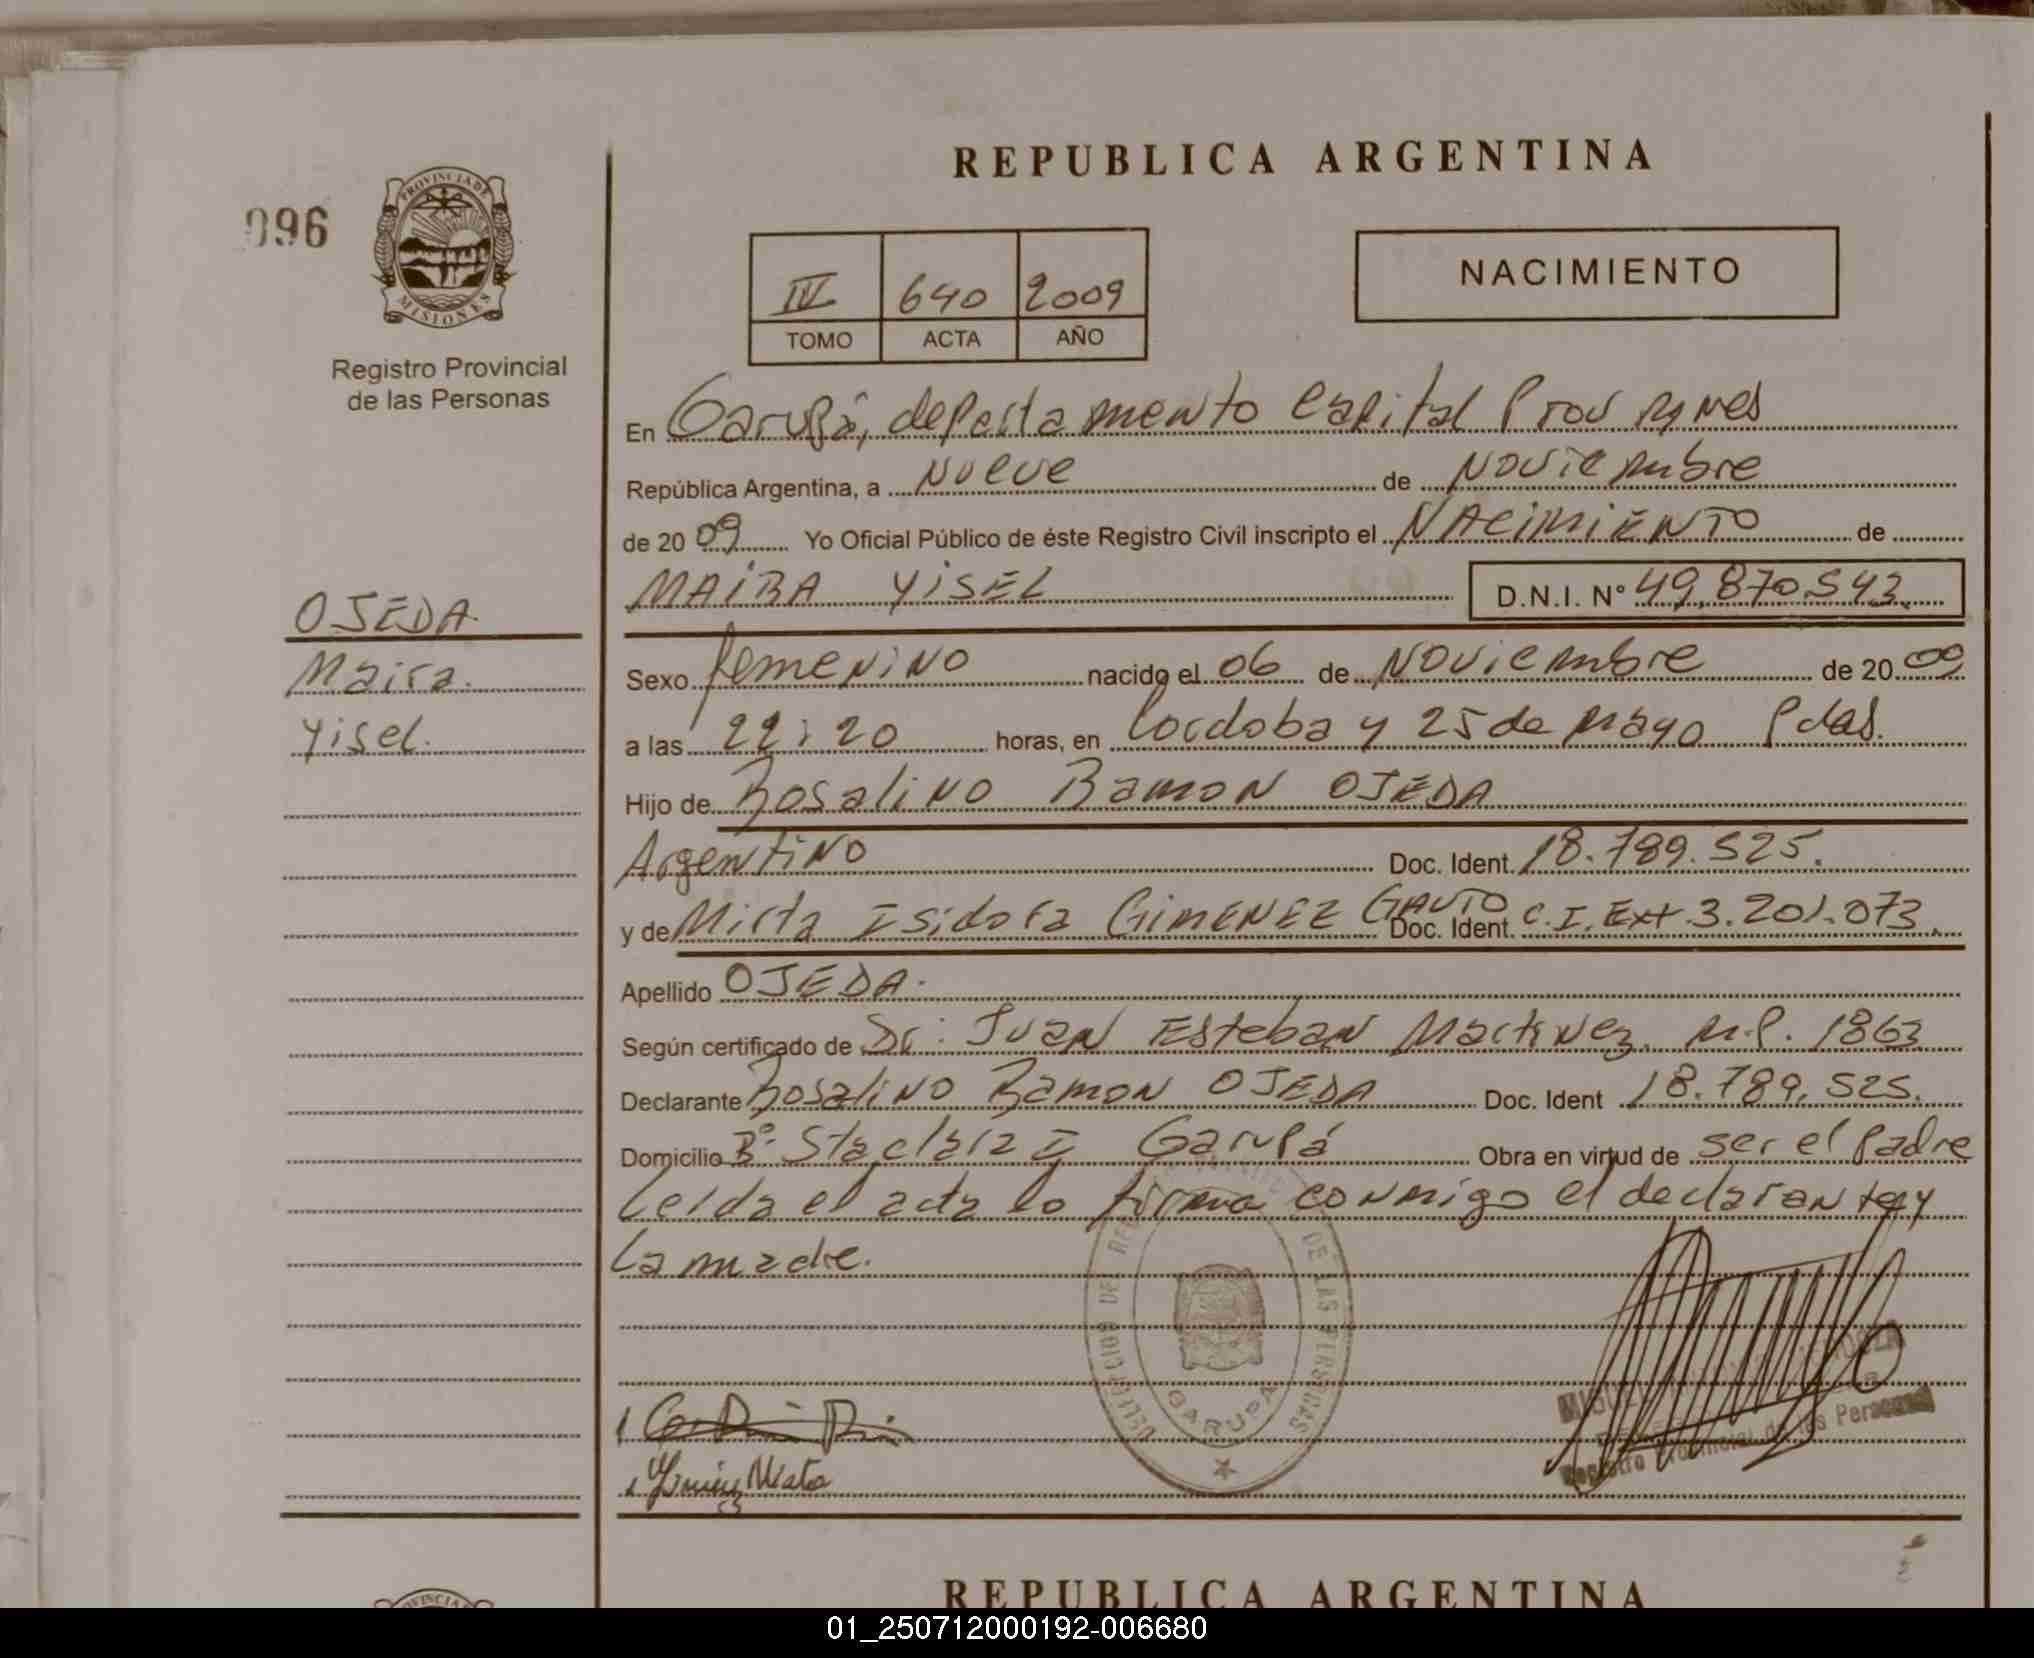 REPUBLICA ARGENTINA
096
PROVINCIA DE
MISIONES
Registro Provincial
de las Personas
IV 640 2009
TOMO ACTA AÑO
NACIMIENTO
En Garupá, departamento Capital Prov Mnes
República Argentina, a Nueve de Noviembre
de 2009 Yo Oficial Público de éste Registro Civil inscripto el NACIMIENTO de
MAIRA YISEL D.N.I. N° 49.870.543.
OJEDA
Maira.
Yisel.
Sexo femenino nacido el 06 de Noviembre de 2009
a las 22:20 horas, en Cordoba y 25 de Mayo Pdas.
Hijo de Rosalino Ramon OJEDA
Argentino Doc. Ident. 18.789.525.
y de Mirta Isidora GIMENEZ GAUTO Doc. Ident. C.I. Ext 3.201.073.
Apellido OJEDA.
Según certificado de Dr: Juan Esteban Martinez. M.P. 1863
Declarante Rosalino Ramon OJEDA Doc. Ident 18.789.525.
Domicilio B° Sta clara I Garupá Obra en virtud de ser el Padre
Leida el acta lo firma conmigo el declarante y
la madre.
DE LAS PERSONAS
GARUPA
Registro Provincial de las Personas
REPUBLICA ARGENTINA
01_250712000192-006680